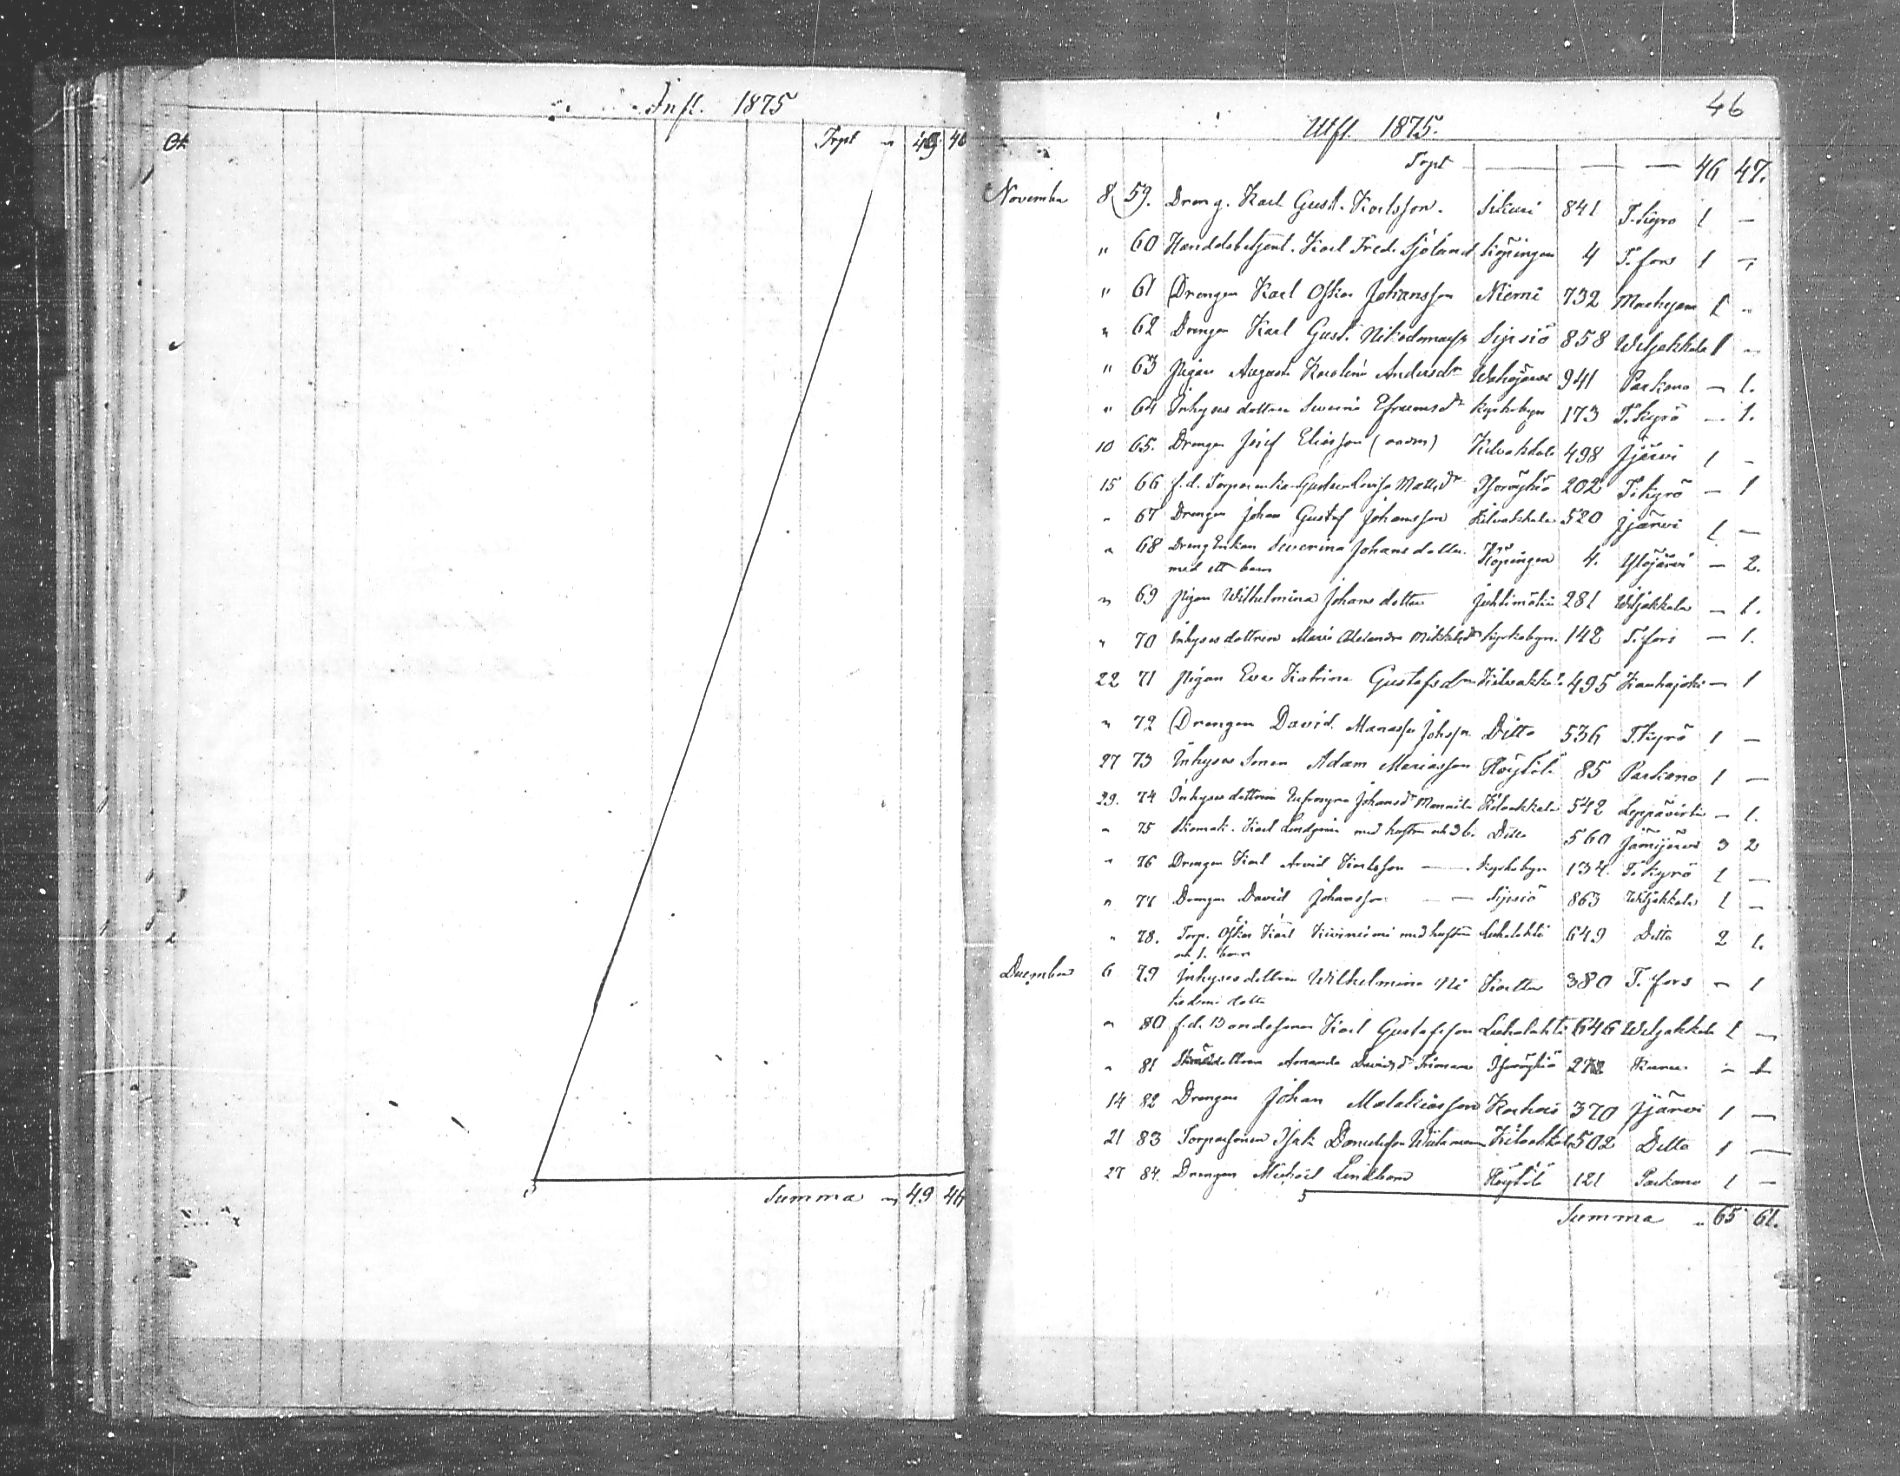 Infl. 1875
Trpt " 49 46
Summa " 49 46
46
Utfl. 1875.
Trpt — — — 46 47.
November 8 59. Dreng. Karl Gust. Karlsson. Sikuri 841 T.kyro 1 —
" 60 Handelsbetjent. Karl Fred. Sjöland Köpingen 4 T.fors 1 —
" 61 Drengen Karl Oskar Johansson Niemi 732 1 "
" 62 Drengen Karl Gust. Sipsiö 858 Wiljakkala 1 "
" 63 Pigan Augusta Karolina Andersdr 941 Parkano — 1.
" 64 Inhyses dottren Severina Efraimsdr Kyrkobyn 173 T.kyrö — 1.
10 65. Drengen Josef Eliasson Kilvakkala 498 Jjärvi 1 —
15 66 f.d. Lovisa Mattsdr 202 T.kyrö — 1
" 67 Drengen Johan Gustaf Johansson Kilvakkala 520 Jjärvi 1 —
" 68 Severina Johansdotter Köpingen 4. Ylöjärvi — 2.
med ett barn
" 69 Pigan Wilhelmina Johansdotter Juhtimäki 281 Wiljakkala — 1.
" 70 Inhysesdottren Maria Alexandra Kyrkobyn. 142 T.fors — 1.
22 71 Pigan Eva Katrina Gustafsdr Kilvakkala 495 Kauhajoki — 1
" 72 Drengen David Manasse Johsson Ditto 536 T.kyrö 1 —
27 73 Inhyses Sonen Adam Mariasson Röyhiö 85 Parkano 1 —
29. 74 Inhysesdottren Eufrosyna Johansdr Mannila Kilvakkala 542 Leppävirta — 1.
" 75 Karl Lindqvist med hustru och 3 b. Ditto 560 Jämijärvi 3 2
" 76 Drengen Karl Arvid Karlsson — Kyrkobyn 134. T.kyrö 1 —
" 77 Drengen David Johansson — Sipsiö 863 Wiljakkala 1 —
" 78. Torp. Oskar Karl Kiviniemi med hustru Luhalahti 649 Ditto 2 1.
och 1. barn
December 6 79 Inhysesdottren Wilhelmina Ni Kartu 380 T.fors — 1
kodemi dotter
" 80 f.d. Bondesonen Karl Gustafsson Luhalahti 646 Wiljakkala 1 —
" 81 Amanda Davidsdr — 1
14 82 Drengen Johan Malakiasson Karhoi 370 Jjärvi 1 —
21 83 Torparsonen Isak Danielsson Kilvakkala 502 Ditto 1 —
27 84. Drengen Michael Lindbom 121 Parkano 1 —
Summa " 65 61.